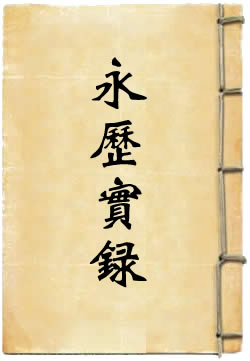 永歷實録